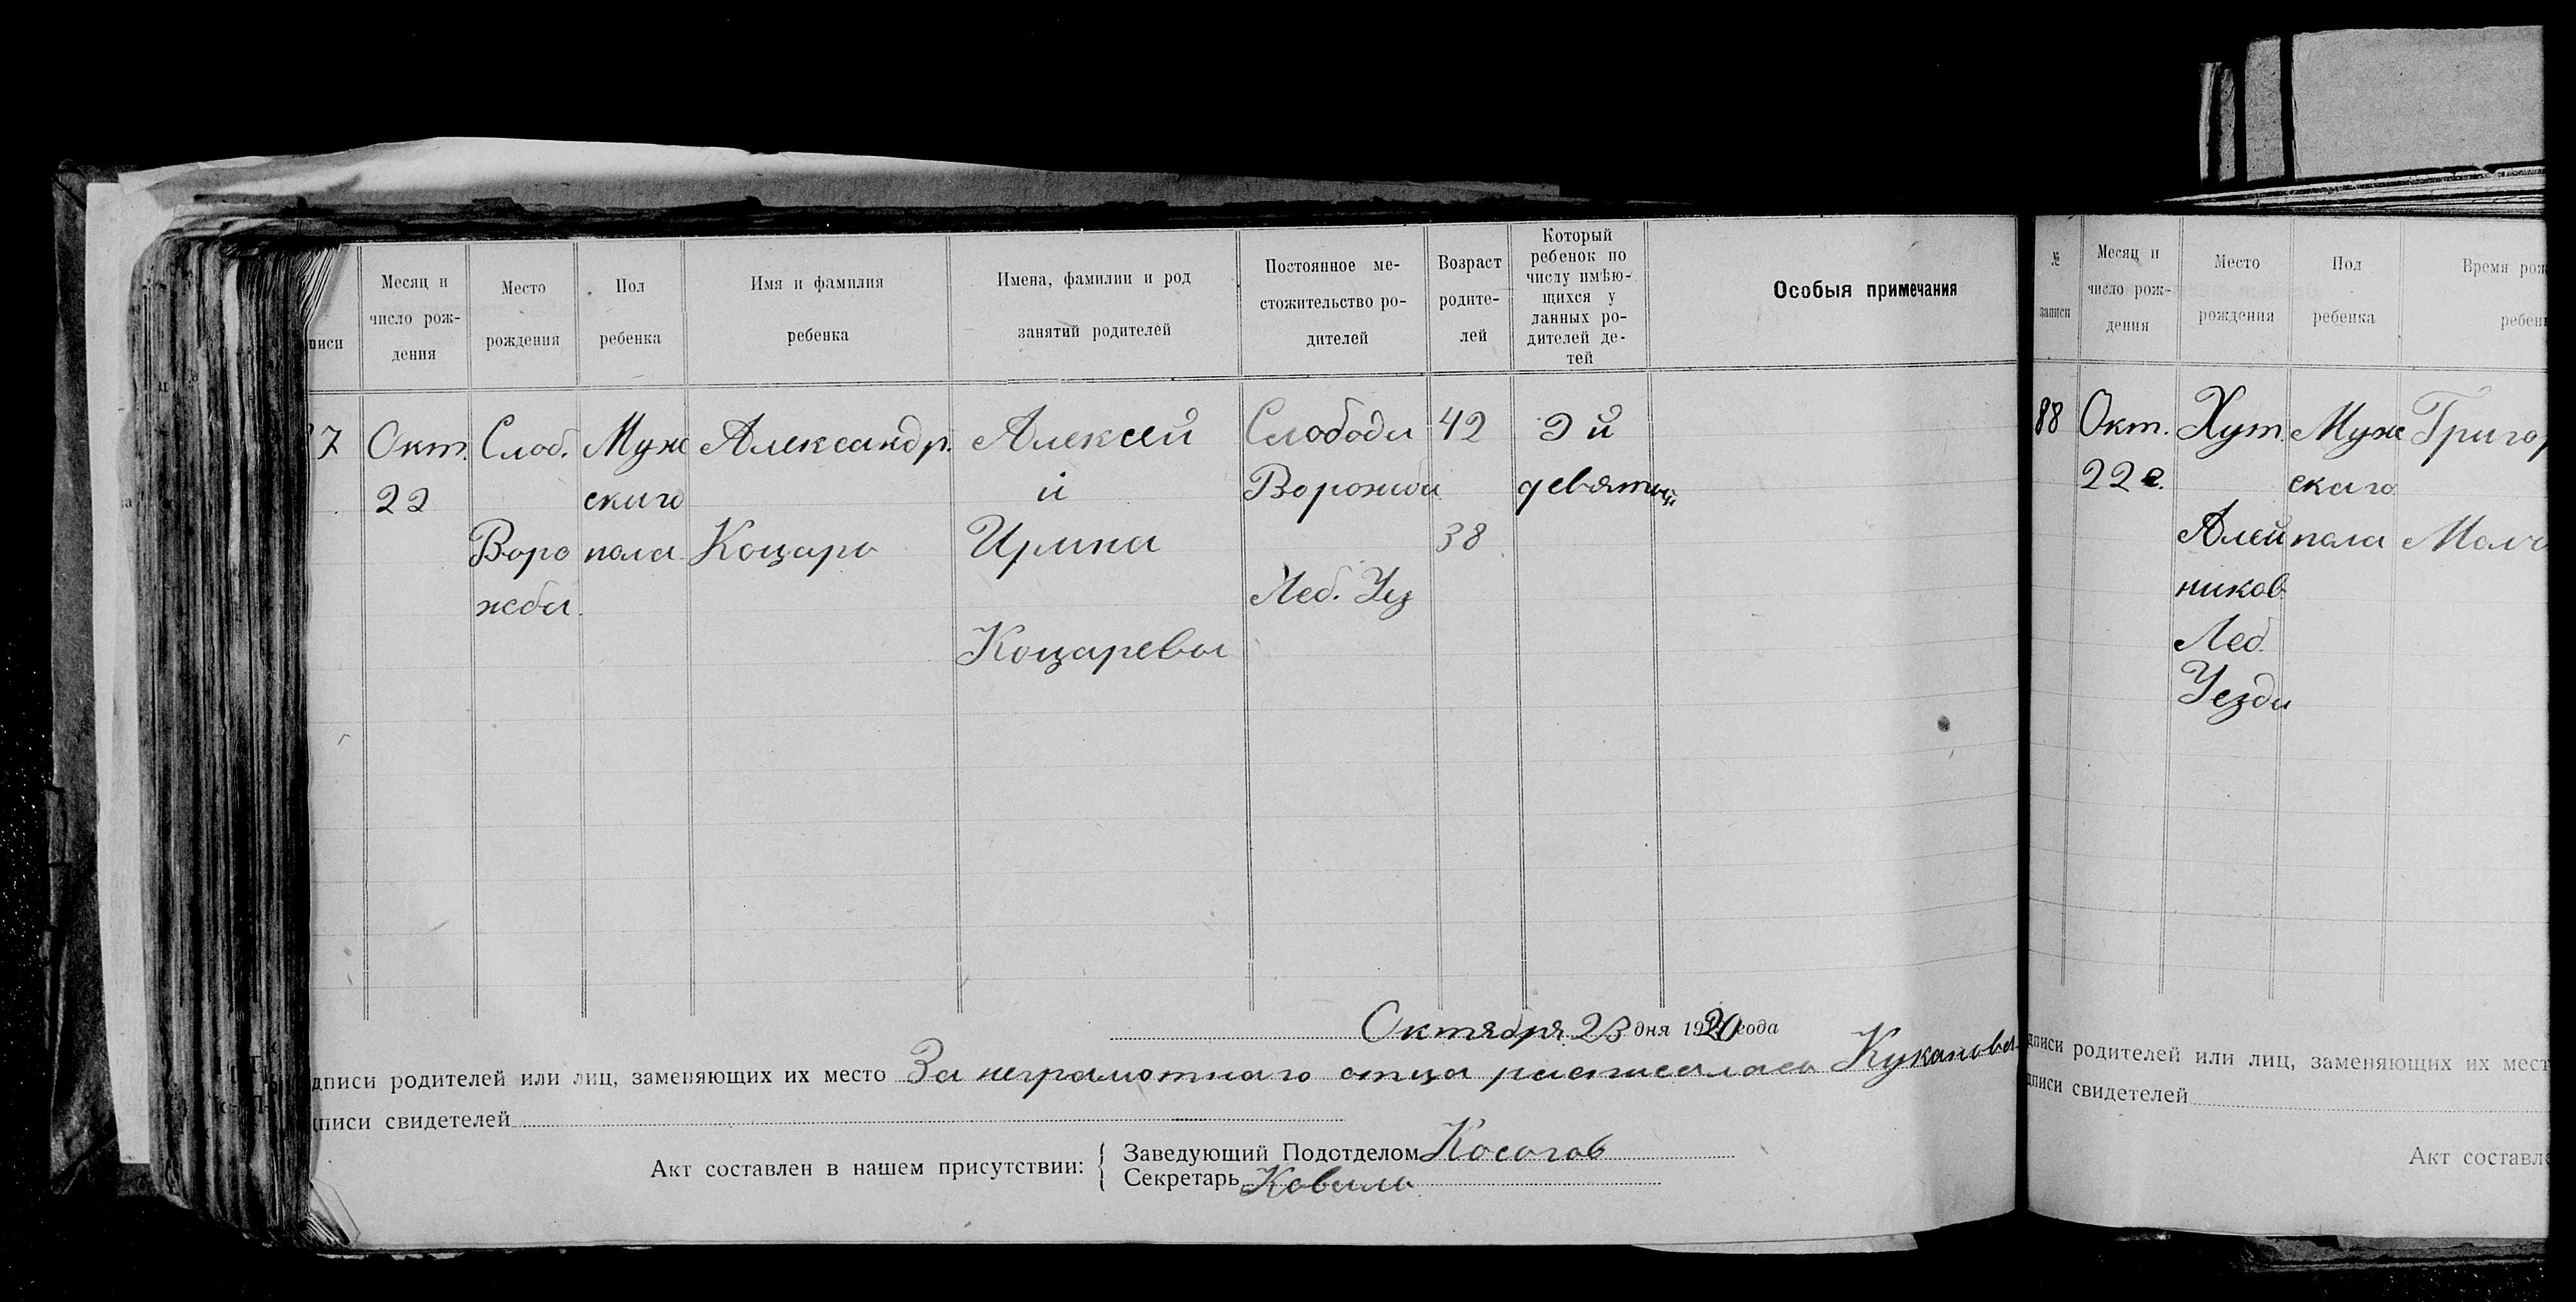 писи
Месяц и
число рож-
дения
Место
рождения
Пол
ребенка
Имя и фамилия
ребенка
Имена, фамилии и род
занятий родителей
Постоянное ме-
стожительство ро-
дителей
Возраст
родите-
лей
Который
ребенок по
числу имѣю-
щихся у
данных ро-
дителей де-
тей
Особыя примечания
7
Окт.
22
Слоб.
Воро
жба
Муж
скаго
пола
Александр.
Коцарь
Алексей
и
Ирина
Коцаревы
Слобода
Ворожба
Леб. Уз
42
38
9 й
девятый
Октября 23 дня 1920 года
дписи родителей или лиц, заменяющих их место За неграмотнаго отца расписалась Куканова
дписи свидетелей
Акт составлен в нашем присутствии:
Заведующий Подотделом Косогов
Секретарь Коваль
№
записи
Месяц и
число рож-
дения
Место
рождения
Пол
ребенка
Время рож
ребен
88
Окт.
22
Хут.
Алей
ников
Леб.
Уезда
Муж
скаго
пола
Григор
Молч
дписи родителей или лиц, заменяющих их мест
дписи свидетелей
Акт составле